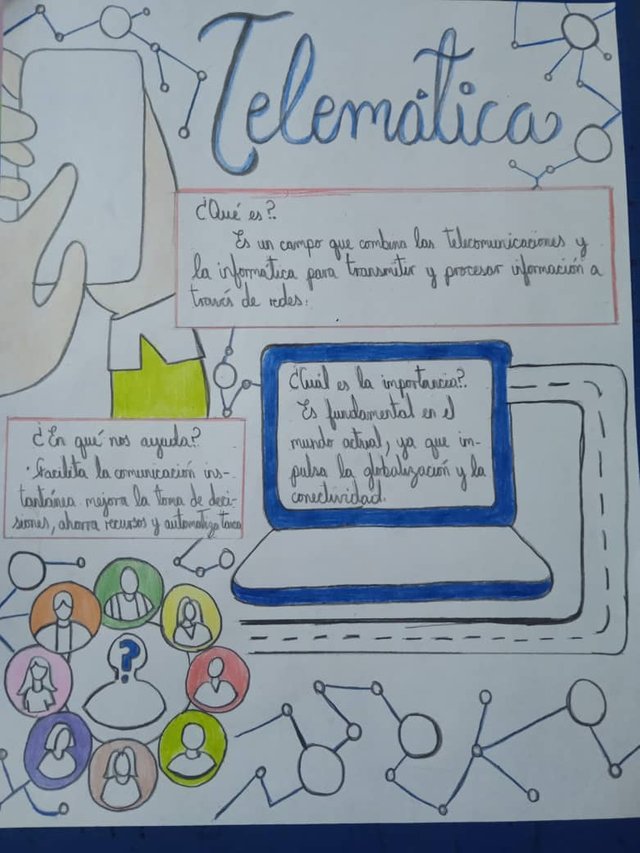 Telemática
¿Qué es?
Es un campo que combina las telecomunicaciones y
la informatica para transmitir y procesar información a
través de redes.
¿Cuál es la importancia?.
Es fundamental en el
mundo actual, ya que im-
pulsa la globalización y la
conectividad.
¿En qué nos ayuda?
· Facilita la comunicación ins-
tantánea. mejora la toma de deci-
siones, ahorra recursos y automatiza tarea
?